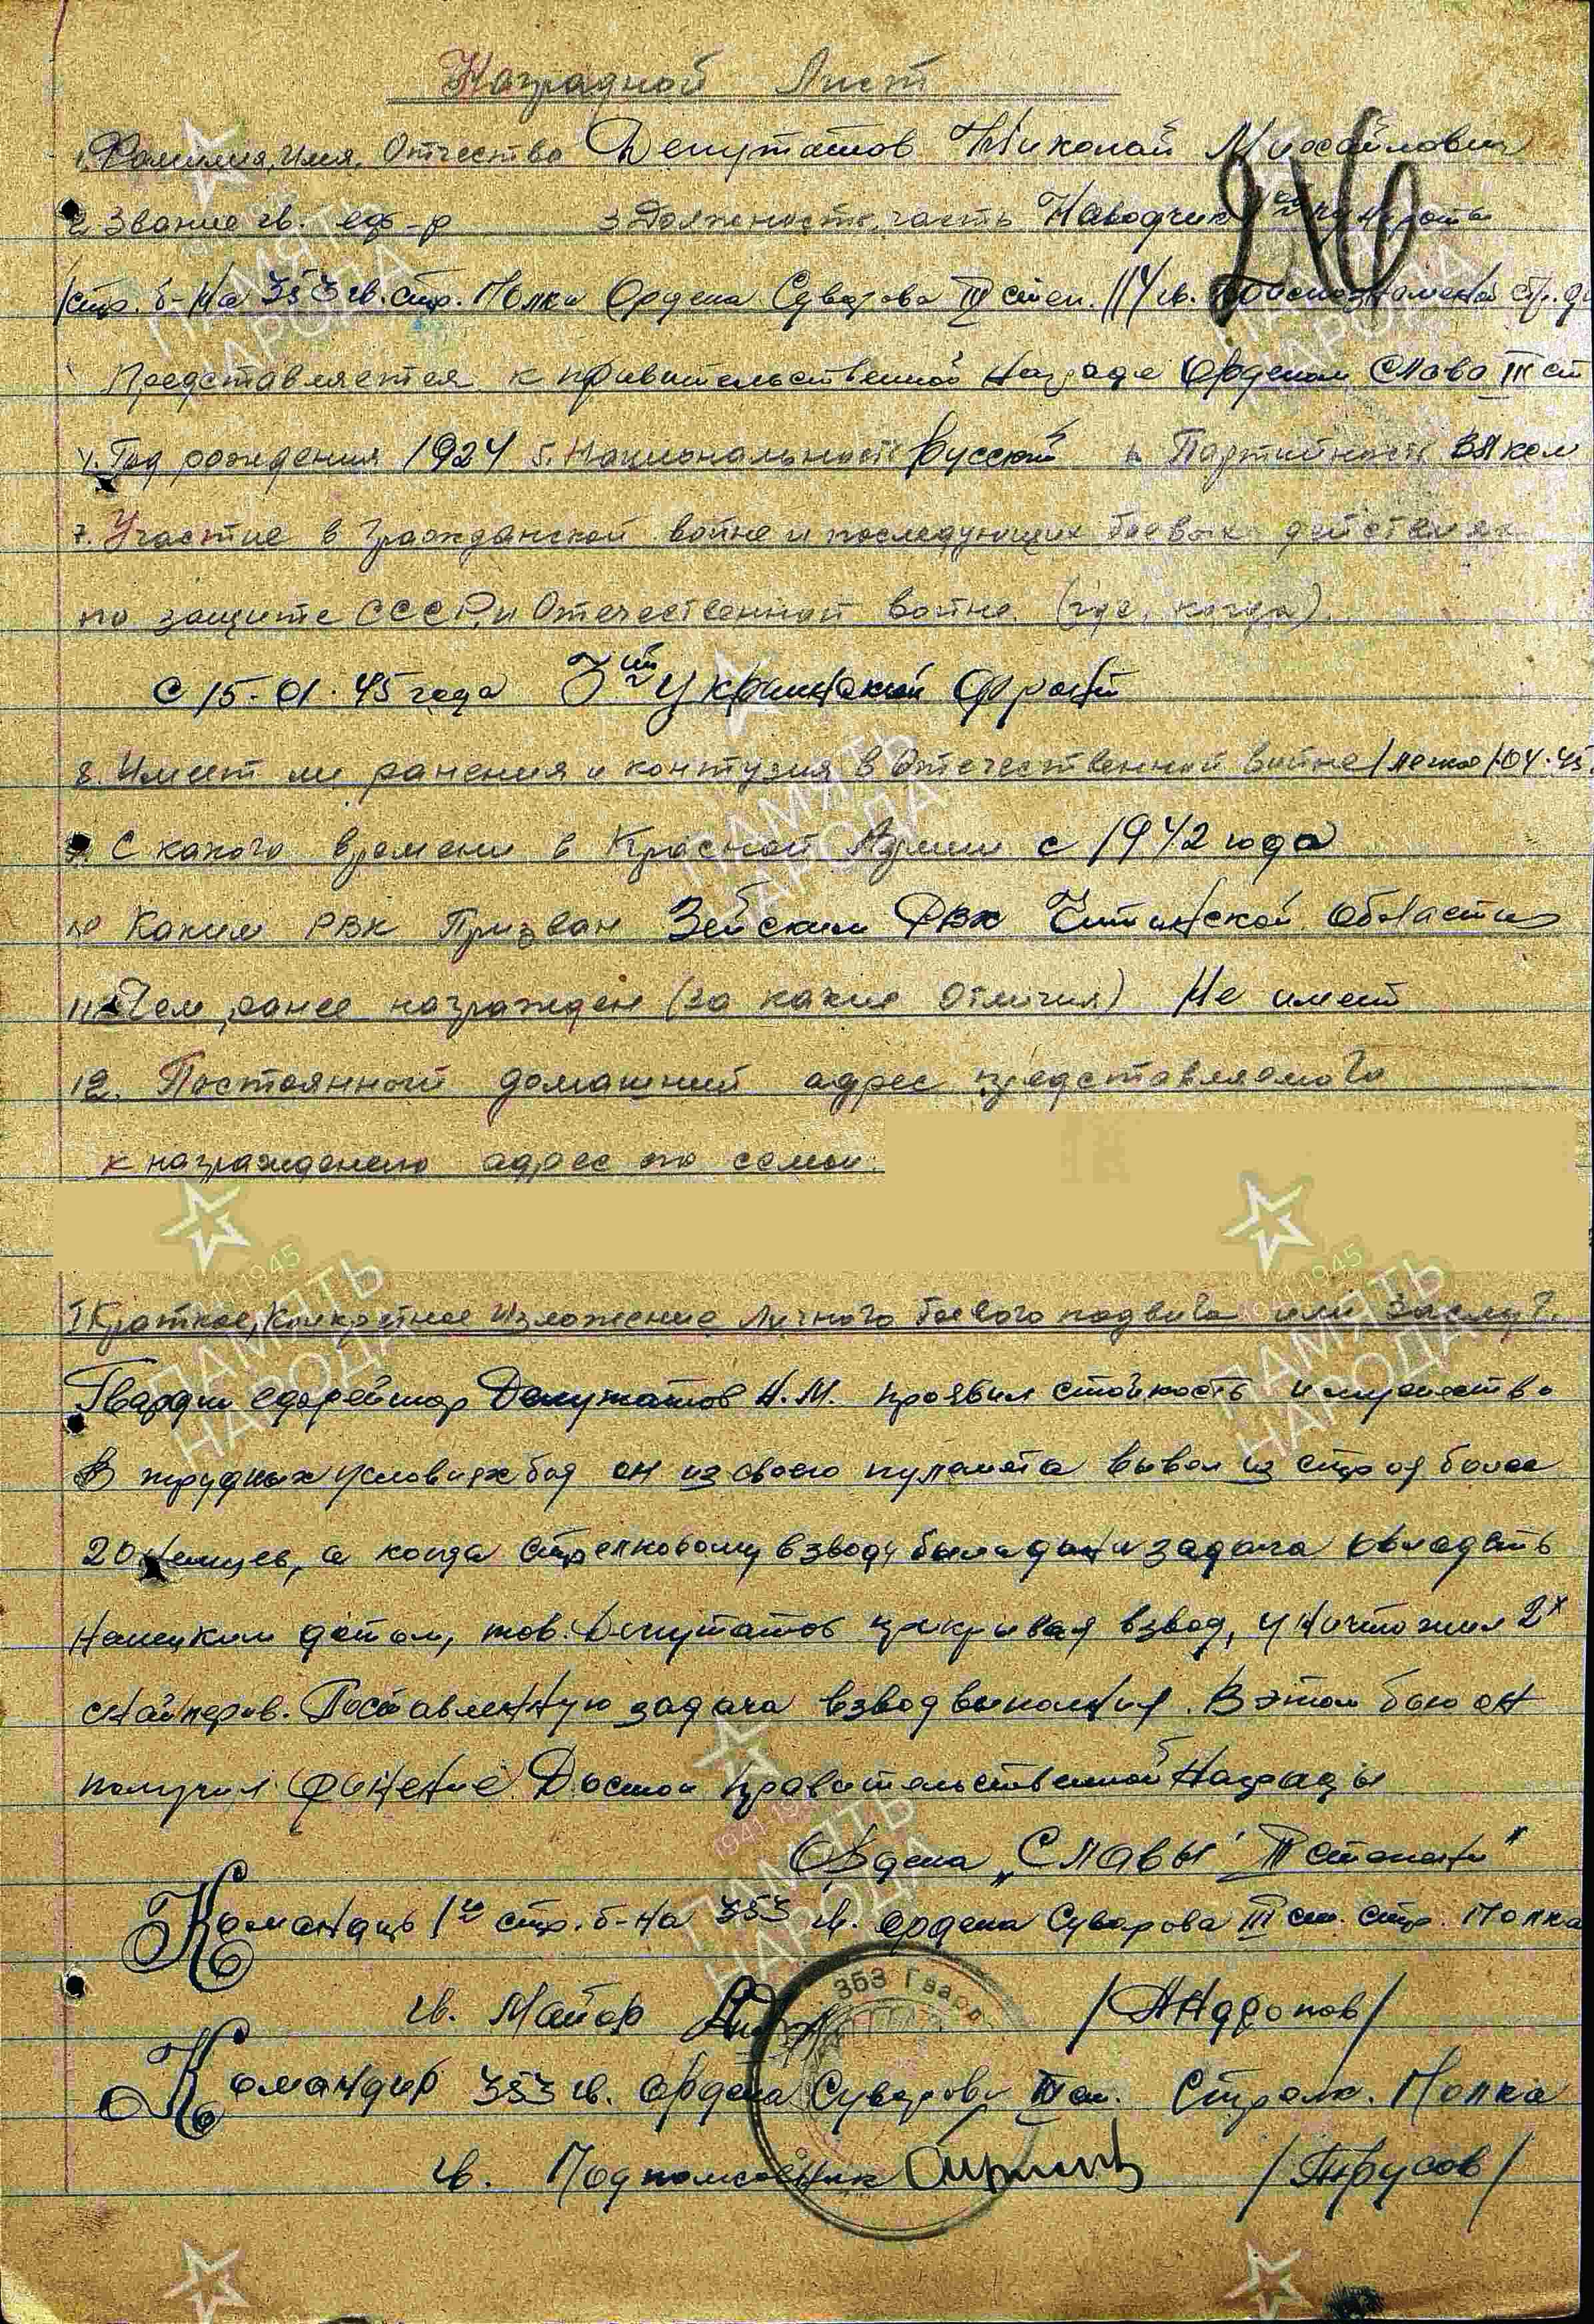 Наградной Лист
1. Фамилия, Имя, Отчество Депутатов Николай Михайлович
2. Звание гв. еф-р 3 Должность, часть Наводчик пульроты
216
1 стр. б-на 353 гв. стр. Полка Ордена Суворова III степ. 114 гв. Краснознаменной стр. ди
Представляется к правительственной награде Орденом Слава III ст
4. Год рождения 1924 5. Национальность Русский 6 Партийность ВЛКСМ
7. Участие в Гражданской войне и последующих боевых действиях
по защите СССР, и Отечественной войне (где, когда).
с 15.01.45 года 3ий Украинский Фронт
8. Имеет ли ранения и контузия в Отечественной войне 1 легкое 1.04.45
9. С какого времени в Красной Армии с 1942 года
10 Каким РВК Призван Зейским РВК Читинской области
11. Чем ранее награжден (за какие отличия) Не имеет
12. Постоянный домашний адрес представляемого
к награждению адрес его семьи.
I Краткое, Конкретное Изложение личного боевого подвига или заслуг.
Гвардии ефрейтор Депутатов Н.М. проявил стойкость и мужество
В трудных условиях боя он из своего пулемета вывел из строя более
20 немцев, а когда стрелковому взводу была дана задача овладеть
немецким дотом, тов. Депутатов прикрывая взвод, уничтожил 2х
снайперов. Поставленную задача взвод выполнил. В этом бою он
получил ранение. Достоин правительственной награды
Ордена „Славы III степени"
Командир 1го стр. б-на 353 гв. ордена Суворова III ст. стр. Полка
гв. Майор /Андропов/
353 Гвард
Командир 353 гв. ордена Суворова III ст. Стрелк. Полка
гв. Подполковник /Трусов/
1941-1945
ПАМЯТЬ
НАРОДА